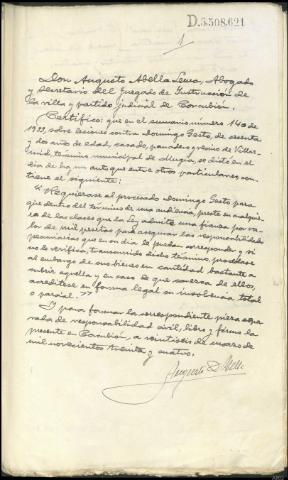 D.5.508.621
1
Don Augusto Abella Leura, Abogado
y Secretario del Juzgado de Instrucción de
la villa y partido judicial de Corcubión.
Certifico: que en el sumario número 140 de
1933, sobre lesiones contra Domingo Gesto, de sesenta
y dos años de edad, casado, panadero y vecino de Villar-
término municipal de Mugía, se dictó en el
día de hoy un auto que entre otros particulares con-
tiene el siguiente:
"Requiérase al procesado Domingo Gesto para
que dentro del término de una audiencia, preste en cualquie-
ra de las clases que la Ley admite una fianza por va-
lor de mil pesetas para asegurar las responsabilidades
pecuniarias que en su día le puedan corresponder, y si
no lo verifica, transcurrido dicho término, procédase
al embargo de sus bienes en cantidad bastante a
cubrir aquella y en caso de que carezca de ellos,
acredítese en forma legal su insolvencia total
o parcial."
Y para formar la correspondiente pieza sepa-
rada de responsabilidad civil, libro y firmo la
presente en Corcubión, a veintiseis de marzo de
mil novecientos treinta y cuatro.
Augusto D. Abella